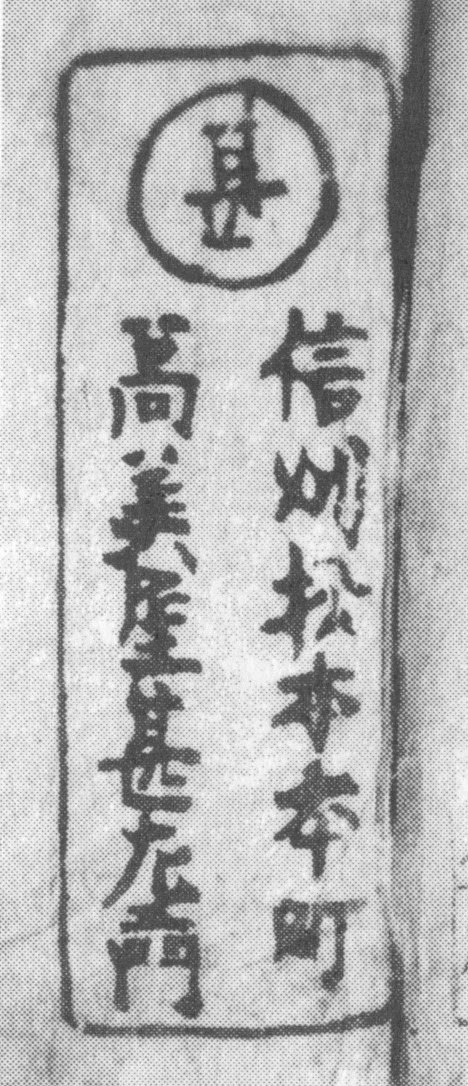 甚
信州松本本町
高美屋甚左エ門